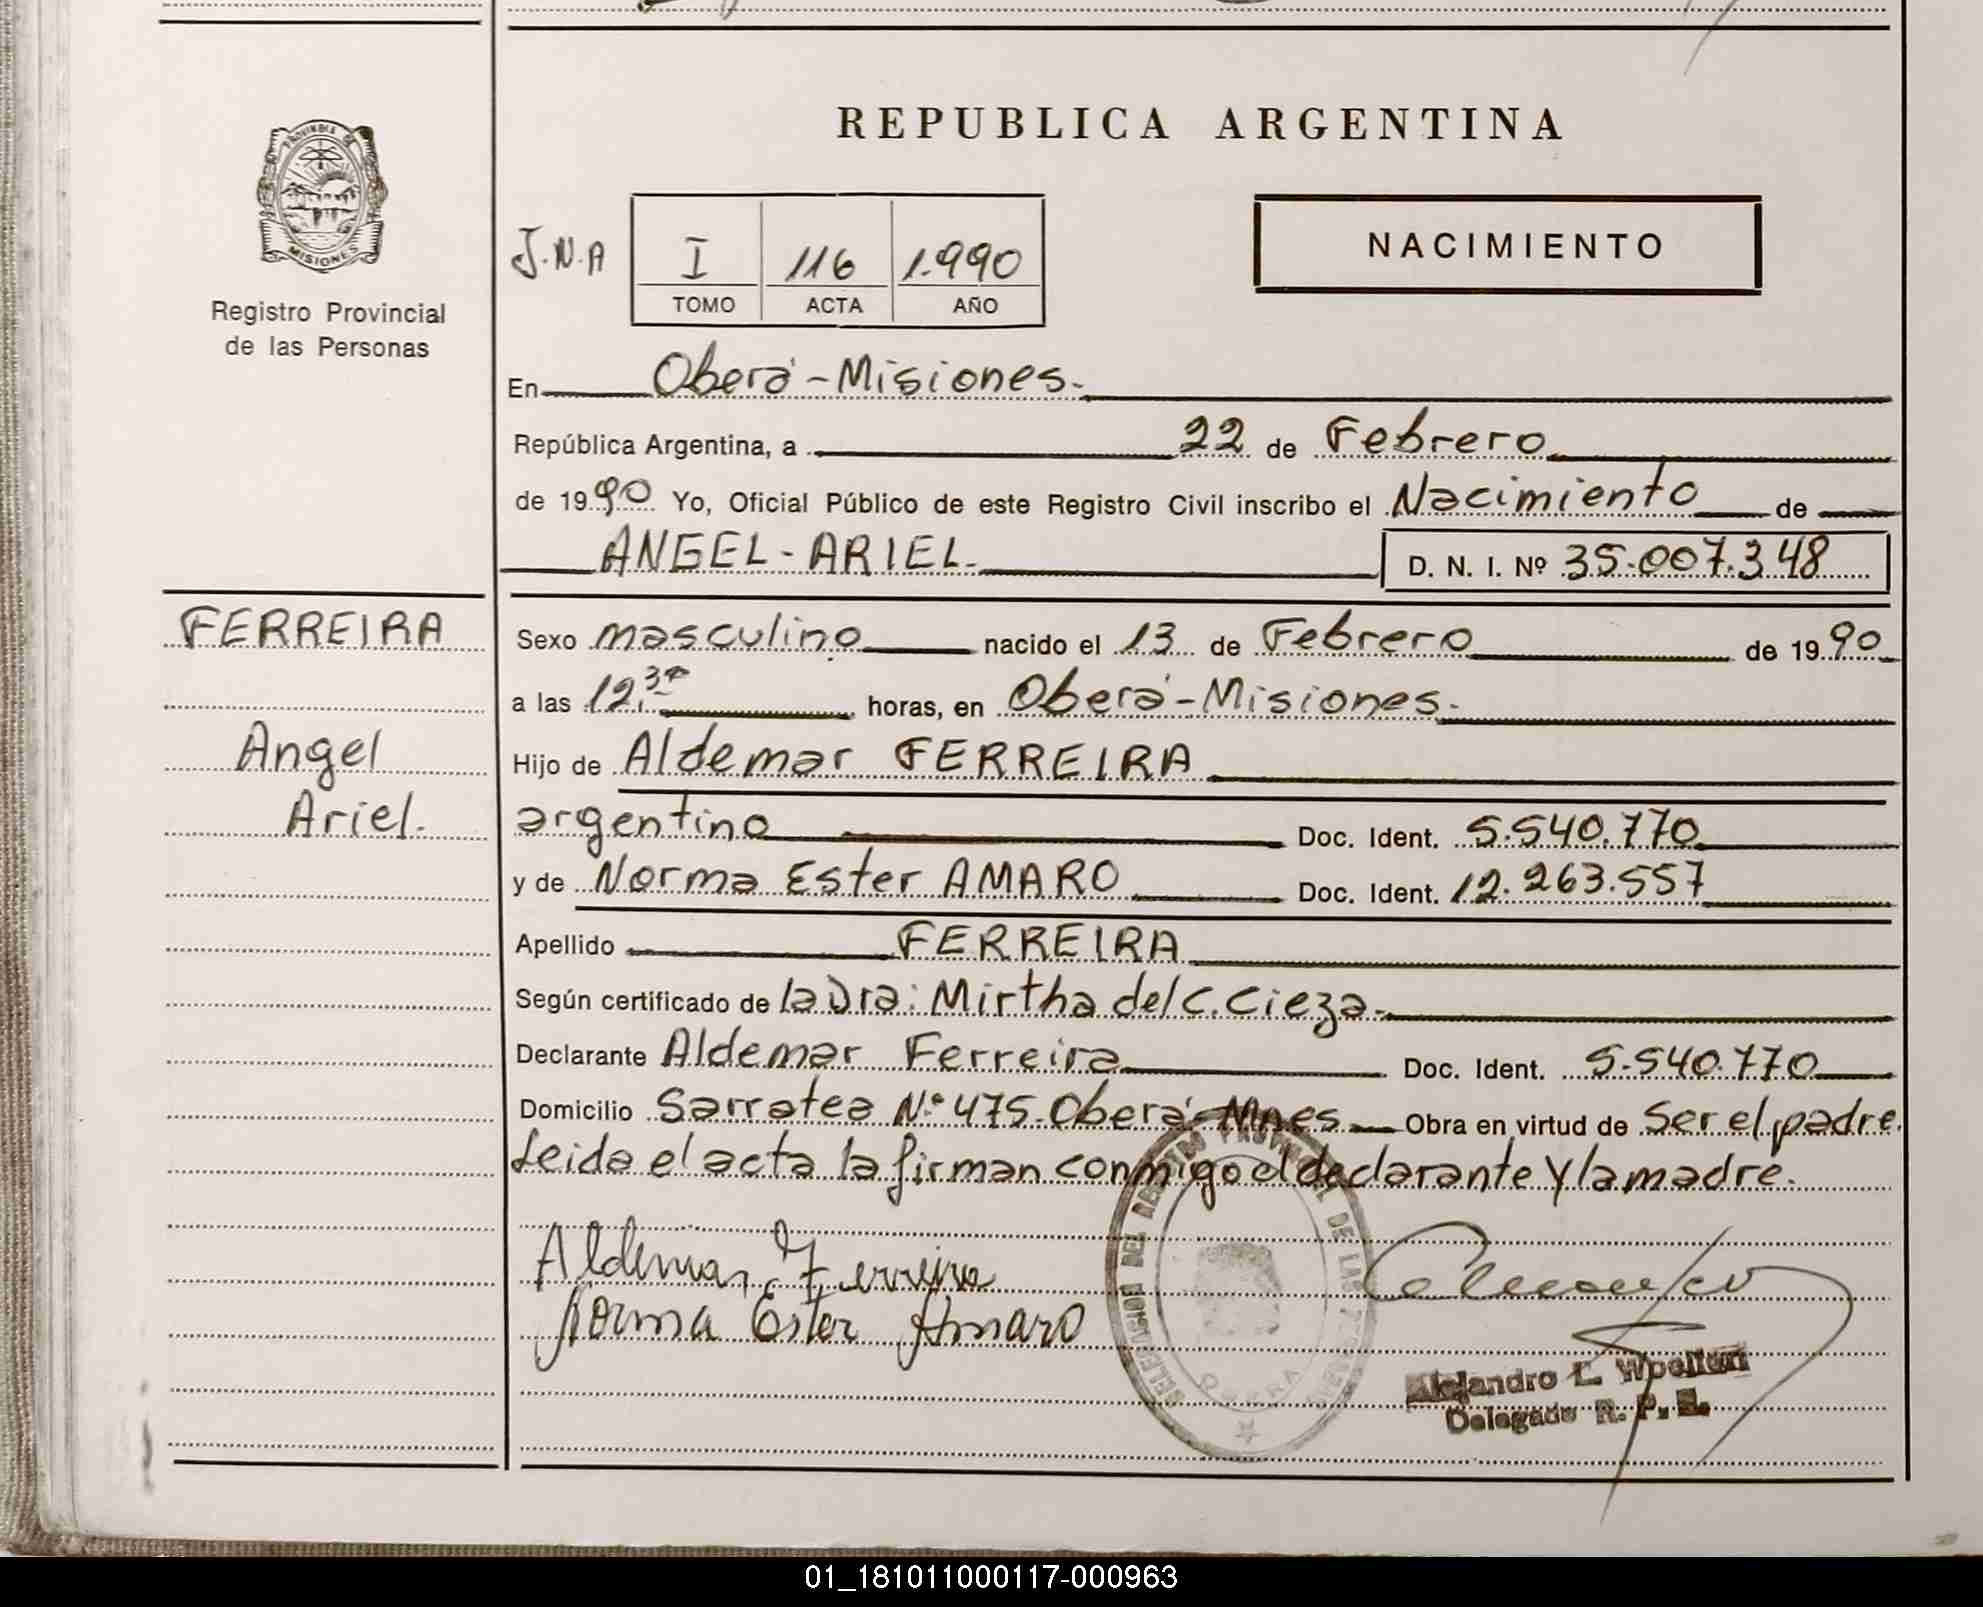 REPUBLICA ARGENTINA
PROVINCIA DE
MISIONES
Registro Provincial
de las Personas
NACIMIENTO
J.N.A I 116 1.990
TOMO ACTA AÑO
En Oberá-Misiones.
República Argentina, a 22 de Febrero
de 1990 Yo, Oficial Público de este Registro Civil inscribo el Nacimiento de
ANGEL-ARIEL. D. N. I. Nº 35.007.348
FERREIRA
Angel
Ariel.
Sexo masculino nacido el 13 de Febrero de 1990
a las 12.30 horas, en Oberá-Misiones.
Hijo de Aldemar FERREIRA
argentino Doc. Ident. 5.540.770
y de Norma Ester AMARO Doc. Ident. 12.263.557
Apellido FERREIRA
Según certificado de la Dra: Mirtha del C. Cieza.
Declarante Aldemar Ferreira Doc. Ident. 5.540.770
Domicilio Sarratea Nº 475-Oberá-Mnes Obra en virtud de Ser el padre.
Leida el acta la firman conmigo el declarante y la madre.
Aldemar Ferreira
Norma Ester Amaro
DEL REGISTRO PROVINCIAL DE LAS
OBERA
Alejandro L.
Delegado R. P.
01_181011000117-000963